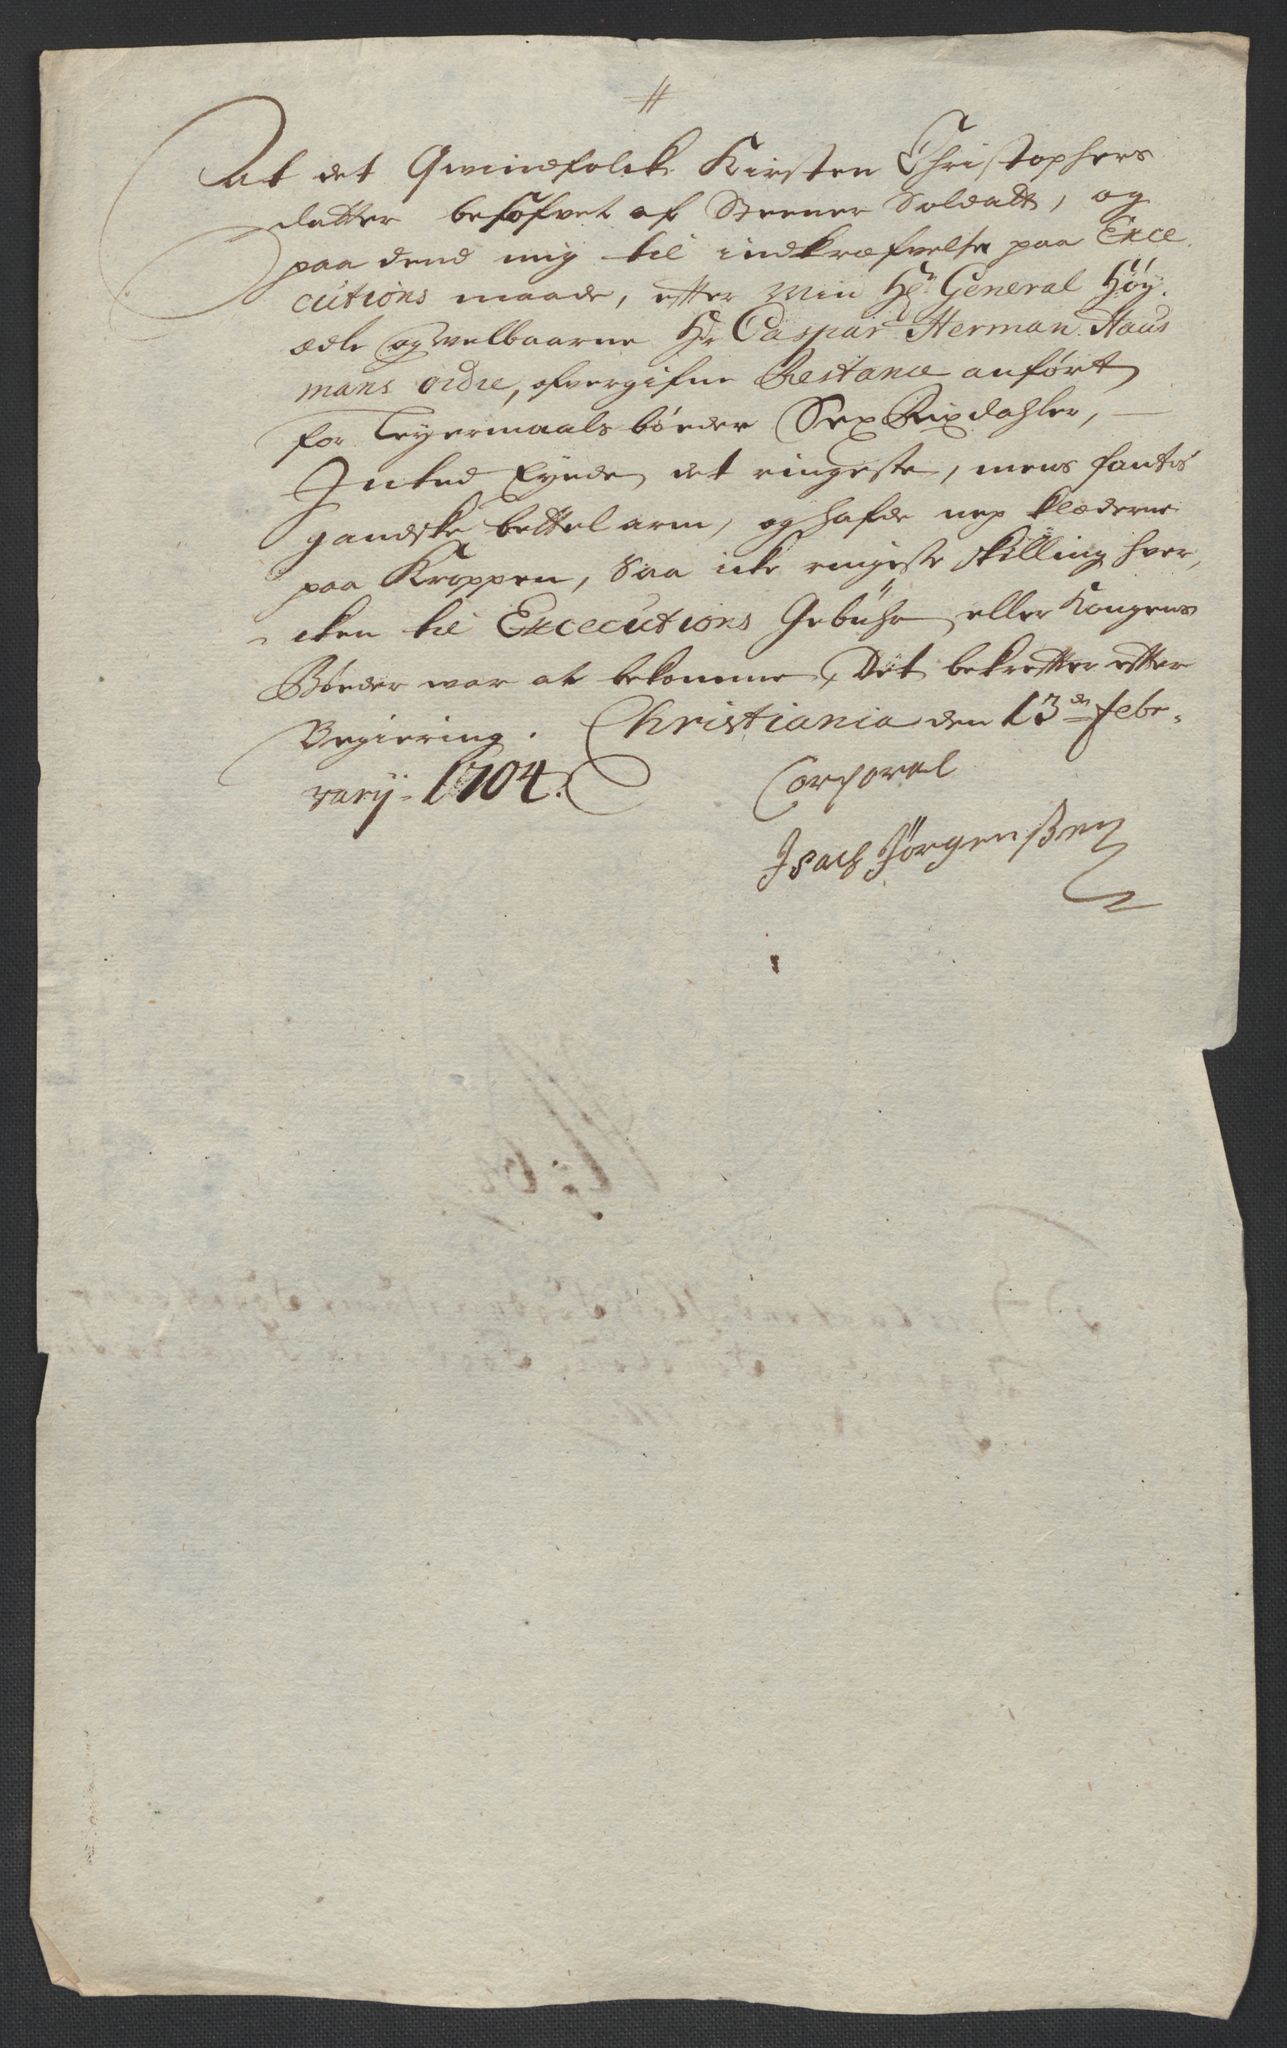 At det Qwindfolck Kirsten Christophers
datter besofvet af Steener Soldatt, og
paa dend mig til indkræfvelse paa Exce
cutions maade, etter Min Hr General Høy
ædle og welbaarne Hr Caspar Herman Haus
mans ordre, ofvergifne Restance anført
for Leyermaals bøeder Sex Rixdahler,
Inted Eyede det ringeste, mens fantis
gandske bettel arm, og hafde nep klæderne
paa Kroppen, Saa icke ringeste skilling hver,
cken til Excecutions Gebühr eller Kongens
Bøeder war at bekomme, Det bekretter etter
Begiering. Christiania den 13de Febr-
varij 1704.
Corporal
Isach Jørgenßen